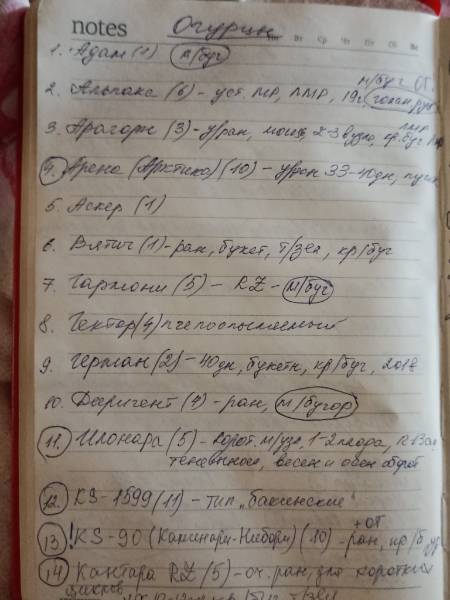 notes Огурцы
Пн Вт Ср Чт Пт Сб Вс
1. Адам (1) м/буг
м/буг ОГ
2. Альпака (6) - уст. МР, ЛМР, 19г,
ЛМР
3. Арагорн (3) - у/ран, 2-3 в узле, кр.буг
4. Арена (Арктика) (10) - у/ран 33-40дн, пучк
5. Аскер (1)
6. Вятич (1) - ран, букет, т/зел, кр/буг
7. Гармони (5) - RZ - м/буг
8. Гектор (4) пчелоопыляемый
9. Герман (2) - 40дн, букетн, кр/буг, 2018
10. Диригент (7) - ран, м/бугор
11. Илонара (5) - корот. м/узл, 1-2 плода,
теневынос, весен и осен оборот
12. KS-1599 (11) - тип „бакинские"
+ОТ
13! KS-90 (Камінарі-Ниборі) (10) - ран, кр/б
14 Кантара RZ (5) - оч. ран, для коротких